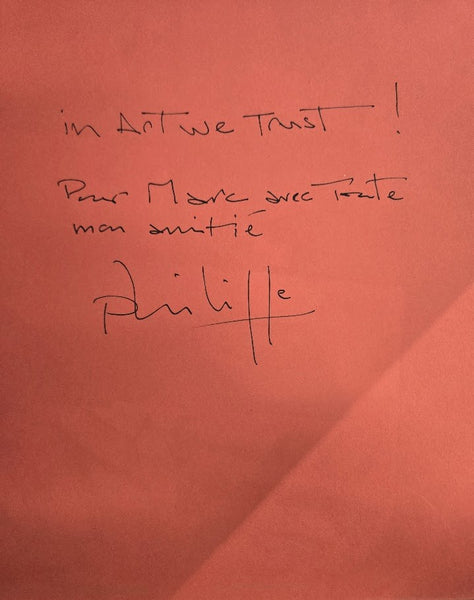 in Art we Trust !
Pour Marc avec Toute
mon amitié
Philippe